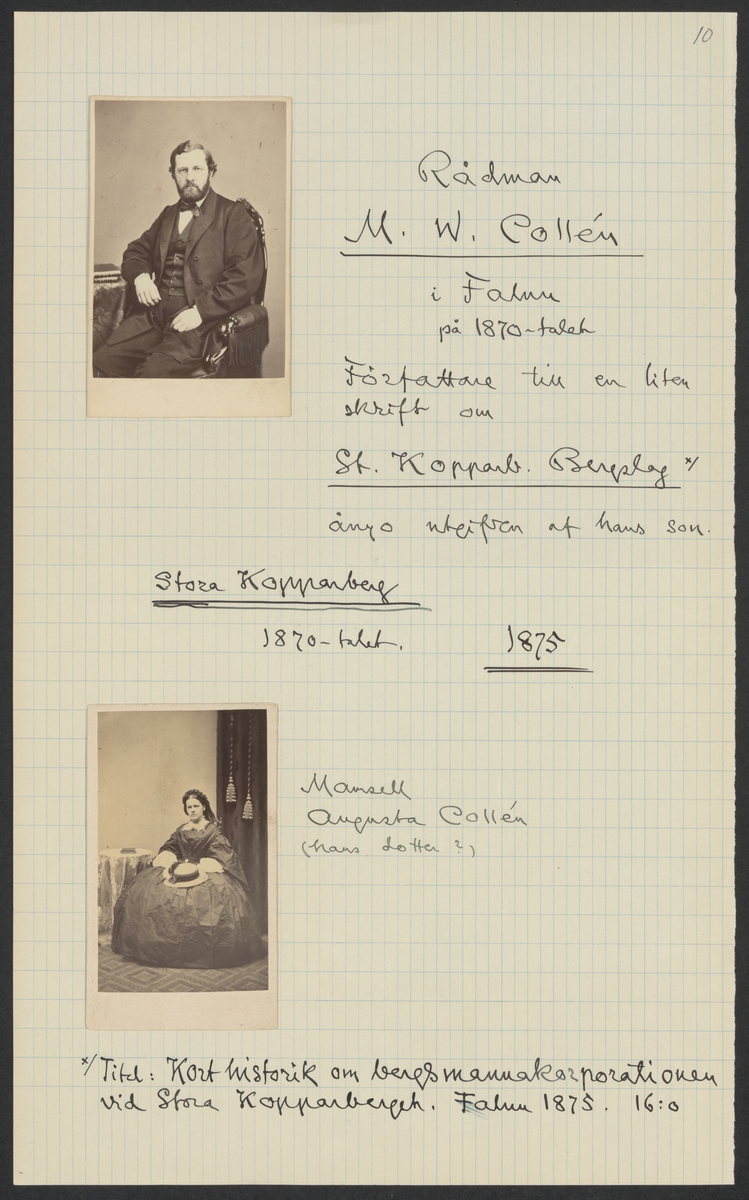 10
Rådman
M. W. Collén
i Falun
på 1870-talet
Författare till en liten
skrift om
St. Kopparb. Bergslag x/
ånyo utgifven af hans son.
Stora Kopparberg
1870-talet. 1875
Mamsell
Augusta Collén
(hans dotter?)
x/ Titel: Kort historik om bergsmannakorporationen
vid Stora Kopparberget. Falun 1875. 16:o